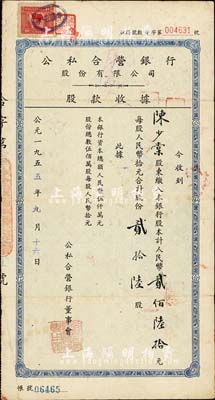 004631 號
公私合營銀行
股份有限公司
股款收據
今收到
陳少棠股東繳入本銀行股本計人民幣貳佰陸拾元
每股人民幣拾元合計股份貳拾陸股
此據
本銀行資本總額人民幣伍仟萬元
股份總數伍佰萬股每股人民幣拾元
公私合營銀行董事會
公元一九五五年九月十六日
帳號06465